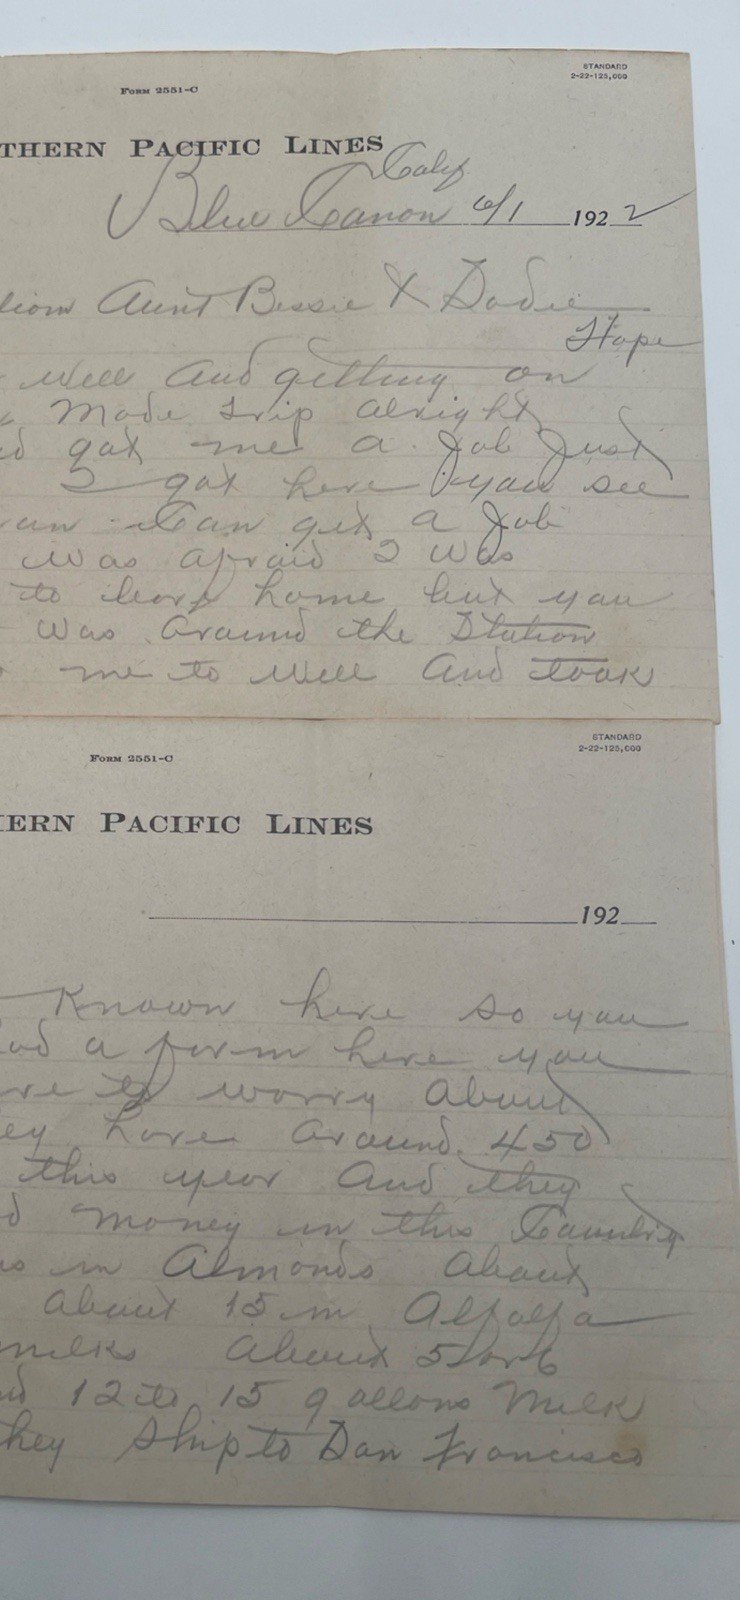 FORM 2551-C
STANDARD
2-22-125,000
THERN PACIFIC LINES
Calif
Blue Canon 6/1 1922
Aunt Bessie & Dodie
Hope
well and getting on
Made trip alright
got me a Job Just
I got here you see
Can get a Job
was afraid I was
to leave home but you
was around the Station
me to well and took
FORM 2551-C
STANDARD
2-22-125,000
ERN PACIFIC LINES
192
Known here so you
a farm here you
to worry about
ey have around 450
this year and they
money in this Country
in Almonds about
about 15 in Alfalfa
milks about 5 or 6
12 to 15 gallons Milk
hey Ship to San Francisco